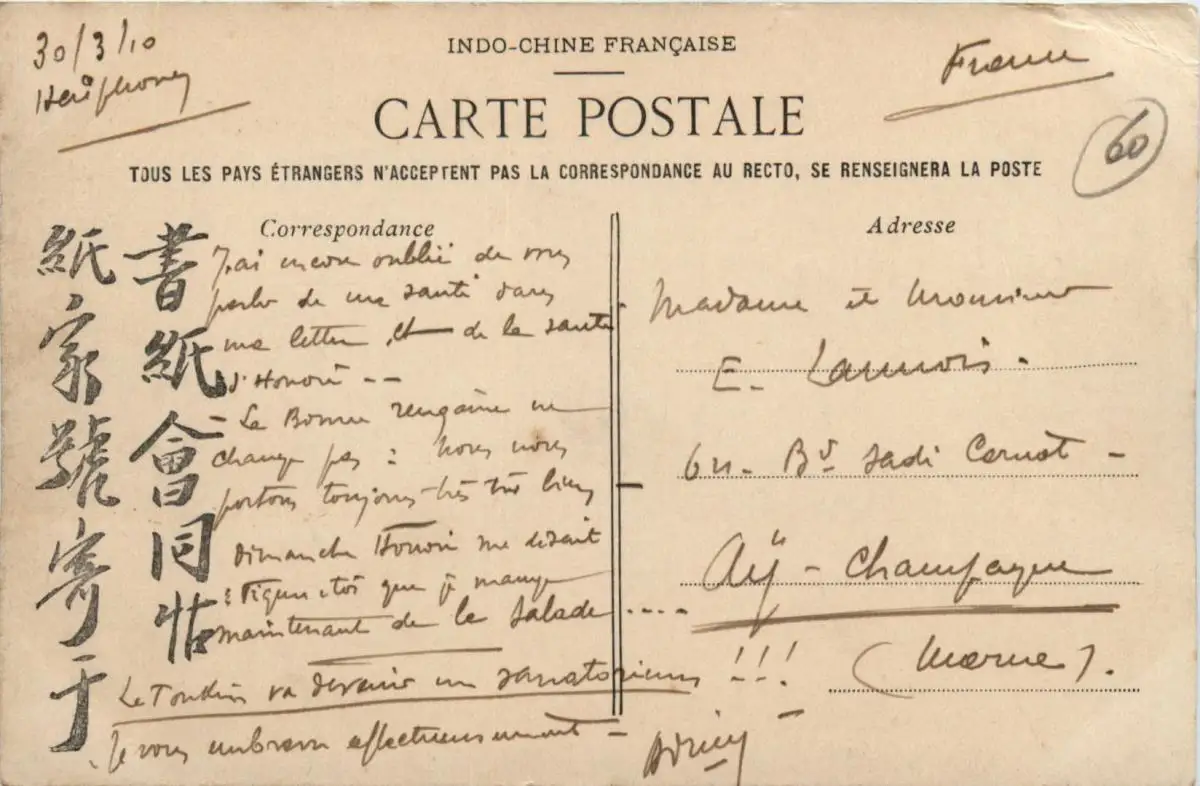 30/3/10
Haïphong
INDO-CHINE FRANÇAISE
CARTE POSTALE
France
60
TOUS LES PAYS ÉTRANGERS N'ACCEPTENT PAS LA CORRESPONDANCE AU RECTO, SE RENSEIGNER A LA POSTE
Correspondance
書紙會同帖
紙家號寄于
J'ai encore oublié de vous
parler de ma santé dans
ma lettre et de la santé
d'Honoré --
- La Bonne rengaine ne
change pas : nous nous
portons toujours très très bien
Dimanche Honoré me disait
: Figure-toi que je mange
maintenant de la salade ....
Le Tonkin va devenir un sanatorium !!!
Je vous embrasse affectueusement -
Adresse
Madame et Monsieur
E. Lannois.
6 - Bd Sadi Carnot -
Aÿ - Champagne
(Marne).